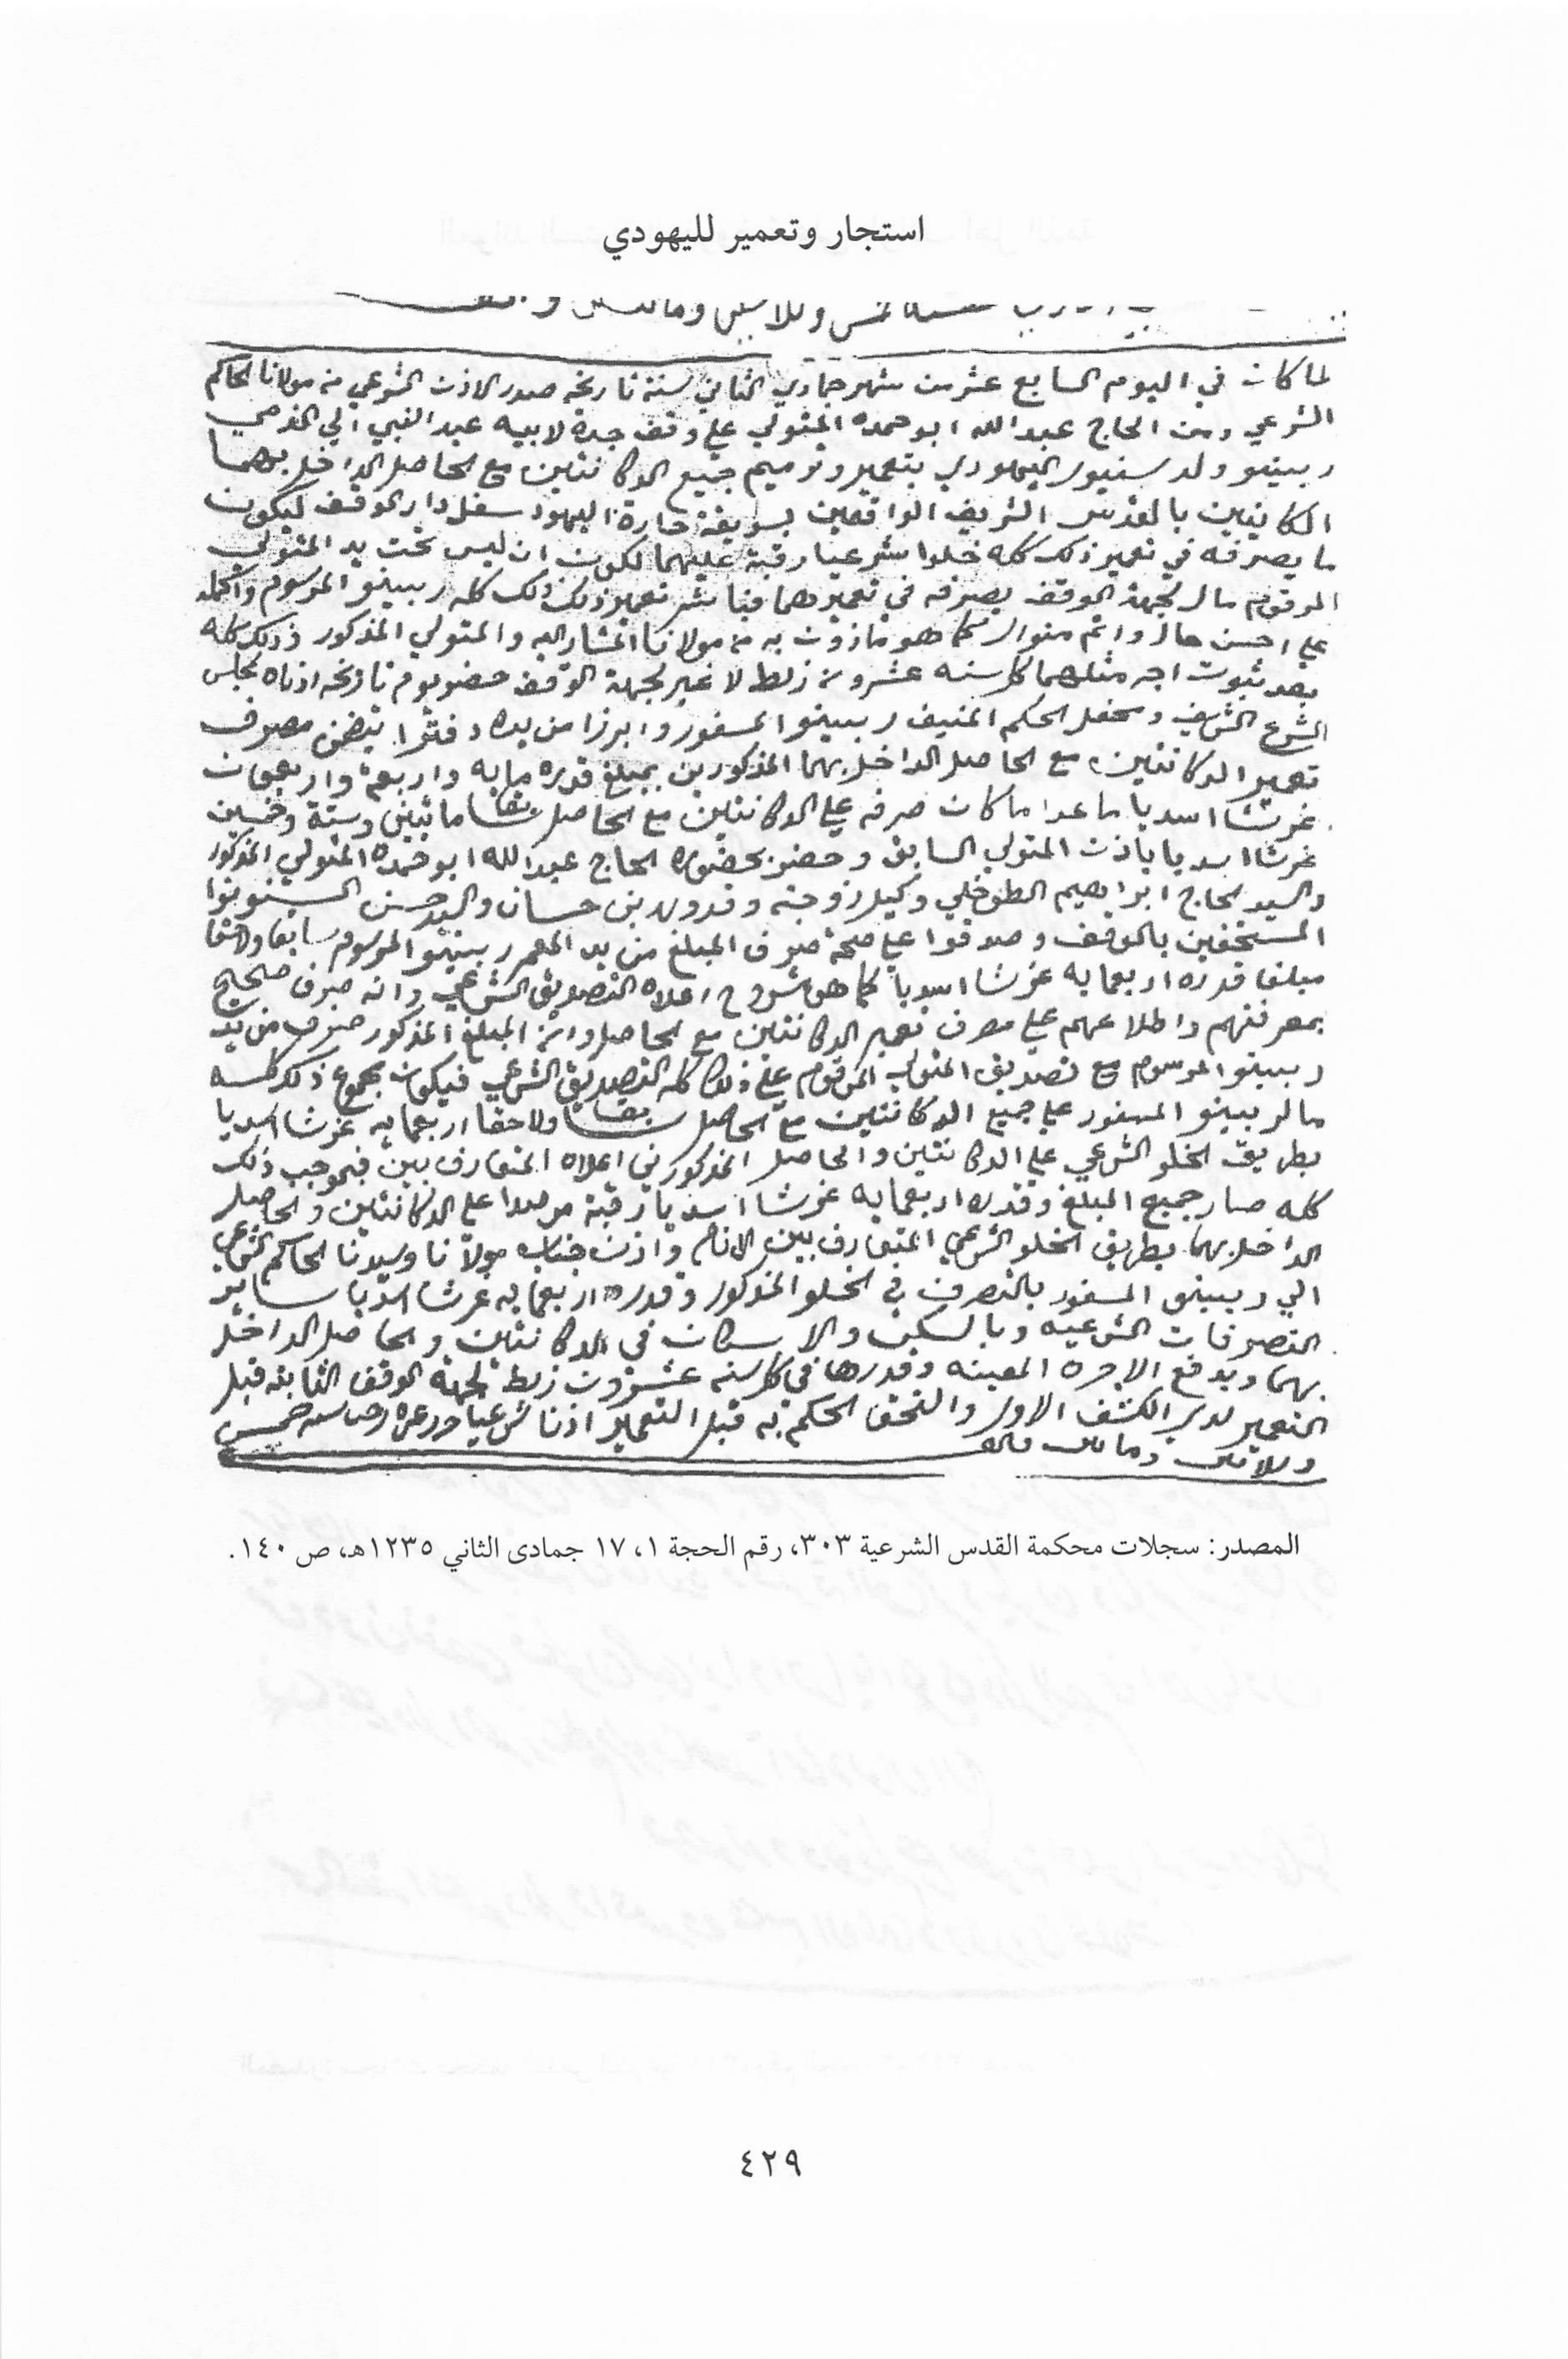 استجار وتعمير لليهودي
لما كان في اليوم السابع عشر من شهر جمادي الثاني سنة تاريخه صدر الاذن الشرعي من مولانا الحاكم
الشرعي ومن الحاج عبدالله ابو حمده المتولي علي وقف جده لابيه عبد النبي الي الذمي
ربينو ولد سنيور اليهودي بتعمير وترميم جميع الدكانتين مع الحاصل الداخل بهما
الكاينين بالقدس الشريف الواقعين بسويقة حارة اليهود سفل دار الوقف ليكون
ما يصرفه في تعمير ذلك كله خلوا شرعيا رقبة عليهما لكون ان ليس تحت يد المتولي
المرقوم مال لجهة الوقف يصرفه في تعميرهما فباشر تعمير ذلك ذلك كله ربينو المرسوم واكمله
علي احسن حال واتم منوال كما هو ماذون به من مولانا المشار اليه والمتولي المذكور وذلك كله
بعد ثبوت اجر مثلهما كل سنه عشرون زلطا لا غير لجهة الوقف حضر يوم تاريخه ادناه لمجلس
الشرع الشريف ومحفل الحكم المنيف ربينو المسفور وابرزا من يده دفترا يتضمن مصرف
تعمير الدكانتين مع الحاصل الداخل بهما المذكورين بمبلغ قدره مايه واربعة واربعون
غرشا اسديا ما عدا ما كان صرفه علي الدكانتين مع الحاصل سابقا مائتين وستة وخمسين
غرشا اسديا باذن المتولي السابق وحضر بحضوره الحاج عبدالله ابو حمده المتولي المذكور
والسيد الحاج ابراهيم وكيل زوجته بن حسان والسيد حسن
المستحقين بالوقف وصدقوا علي صحة صرف المبلغ من يد المعمر ربينو المرسوم سابقا ولاحقا
مبلغا قدره اربعمايه غرشا اسديا كما هو مشروح اعلاه التصديق الشرعي وانه صرف صحيح
بمعرفتهم واطلاعهم علي مصرف تعمير الدكانتين مع الحاصل وان المبلغ المذكور صرف من يد
ربينو المرسوم مع تصديق المتولي المرقوم علي ذلك كله التصديق الشرعي فيكون مجموع ذلك كله
ما لربينو المسفور علي جميع الدكانتين مع الحاصل سابقا ولاحقا اربعمايه غرشا اسديا
بطريق الخلو الشرعي علي الدكانتين والحاصل المذكور في اعلاه المتعارف بين فبموجب ذلك
كله صار جميع المبلغ وقدره اربعمايه غرشا اسديا رقبة مرصدا علي الدكانتين والحاصل
الداخل بهما بطريق الخلو الشرعي المتعارف بين الانام واذن جناب مولانا وسيدنا الحاكم الشرعي
الي ربينو المسفور بالتصرف في الخلو المذكور وقدره اربعمايه غرشا اسديا ساير
التصرفات الشرعيه وبالسكن والاسكان في الدكانتين والحاصل الداخل
بهما وبدفع الاجره المعينه وقدرها في كل سنه عشرون زلطه لجهة الوقف الثابته قبل
التعمير لدي الكشف الاول والتحق الحكم به قبل التعمير اذنا شرعيا وحرر في غرة رجب سنة خمس
وثلاثين ومايتين والف
المصدر: سجلات محكمة القدس الشرعية ٣٠٣، رقم الحجة ١، ١٧ جمادى الثاني ١٢٣٥هـ، ص ١٤٠.
٤٢٩